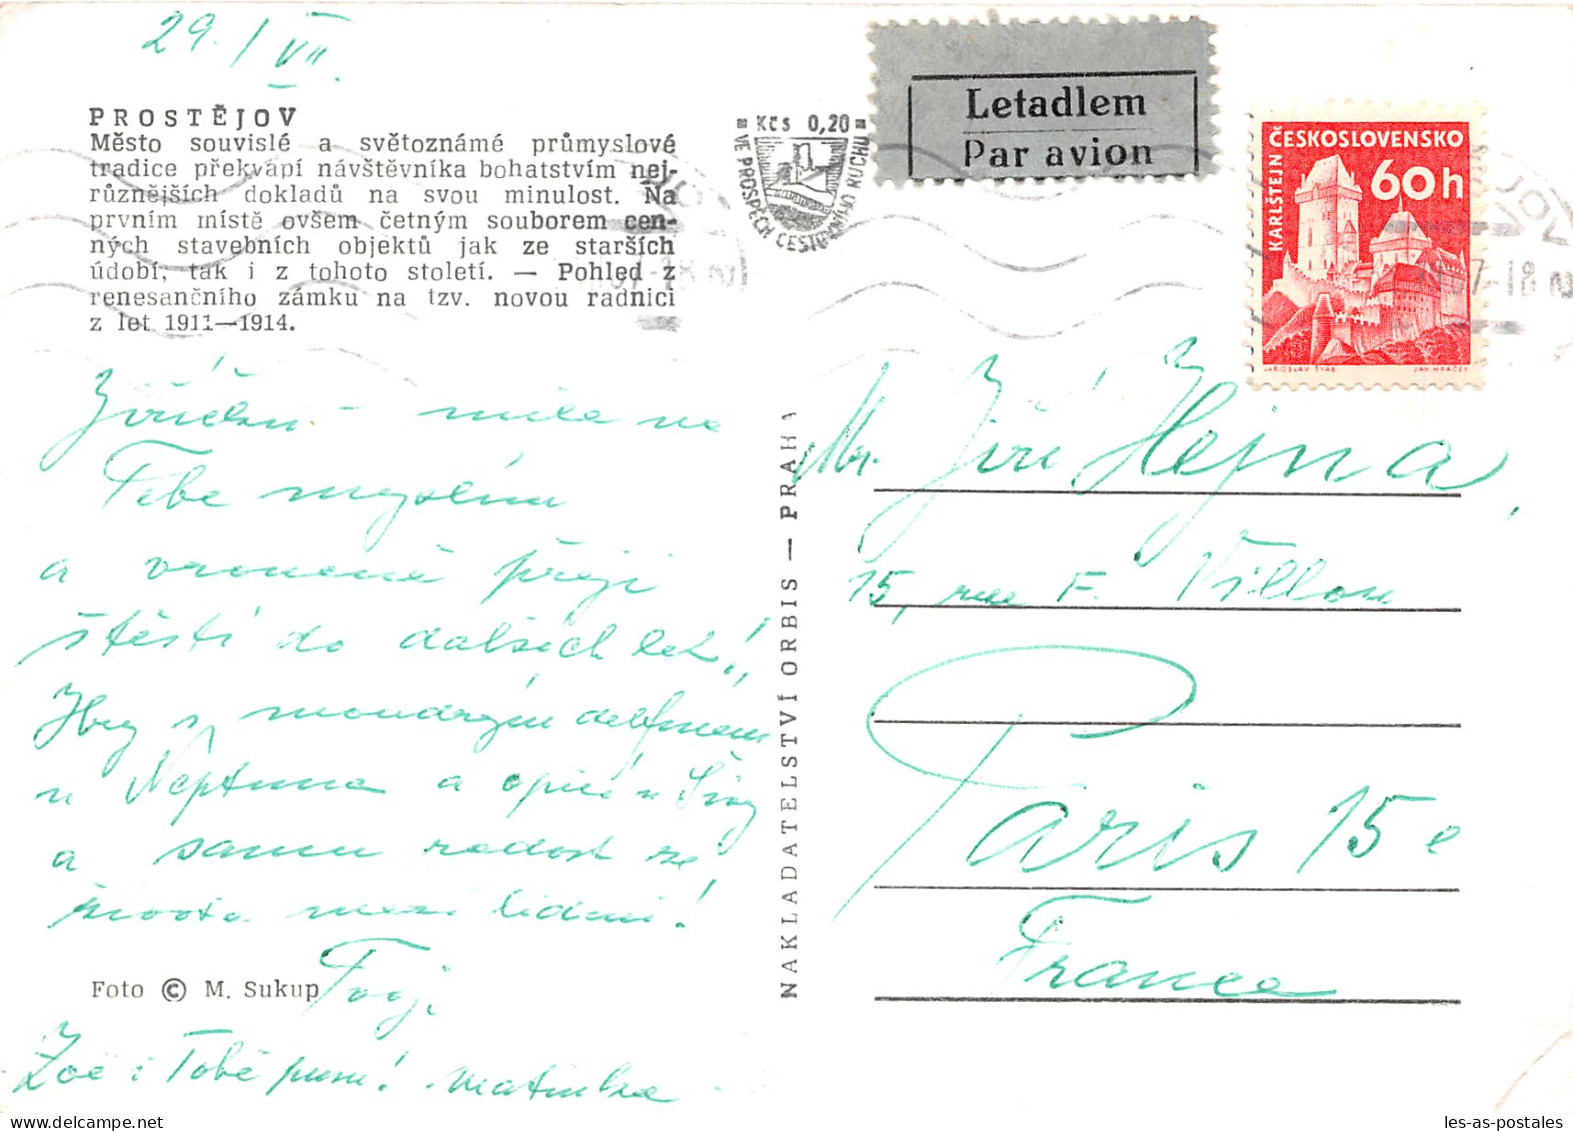 29. / VII.
PROSTĚJOV
Město souvislé a světoznámé průmyslové
tradice překvapí návštěvníka bohatstvím nej-
různějších dokladů na svou minulost. Na
prvním místě ovšem četným souborem cen-
ných stavebních objektů jak ze starších
údobí, tak i z tohoto století. — Pohled z
renesančního zámku na tzv. novou radnici
z let 1911—1914.
Jiříčku - mile na
Tebe myslím
a vroucně přeji
štěstí do dalších let!
Hry s moudrým delfínem
u Neptuna a opicí u
a samu radost ze
života mezi lidmi!
Foto © M. Sukup
Zoe i Tobě pusu! maminka
NAKLADATELSTVÍ ORBIS — PRAHA
Kčs 0,20
VE PROSPĚCH CESTOVNÍHO RUCHU
Letadlem
Par avion
ČESKOSLOVENSKO
60h
KARLŠTEJN
JAROSLAV ŠVÁB JAN MRÁČEK
Mr. Jiří Hejna,
15, rue F. Villon
Paris 15e
France
les-as-postales